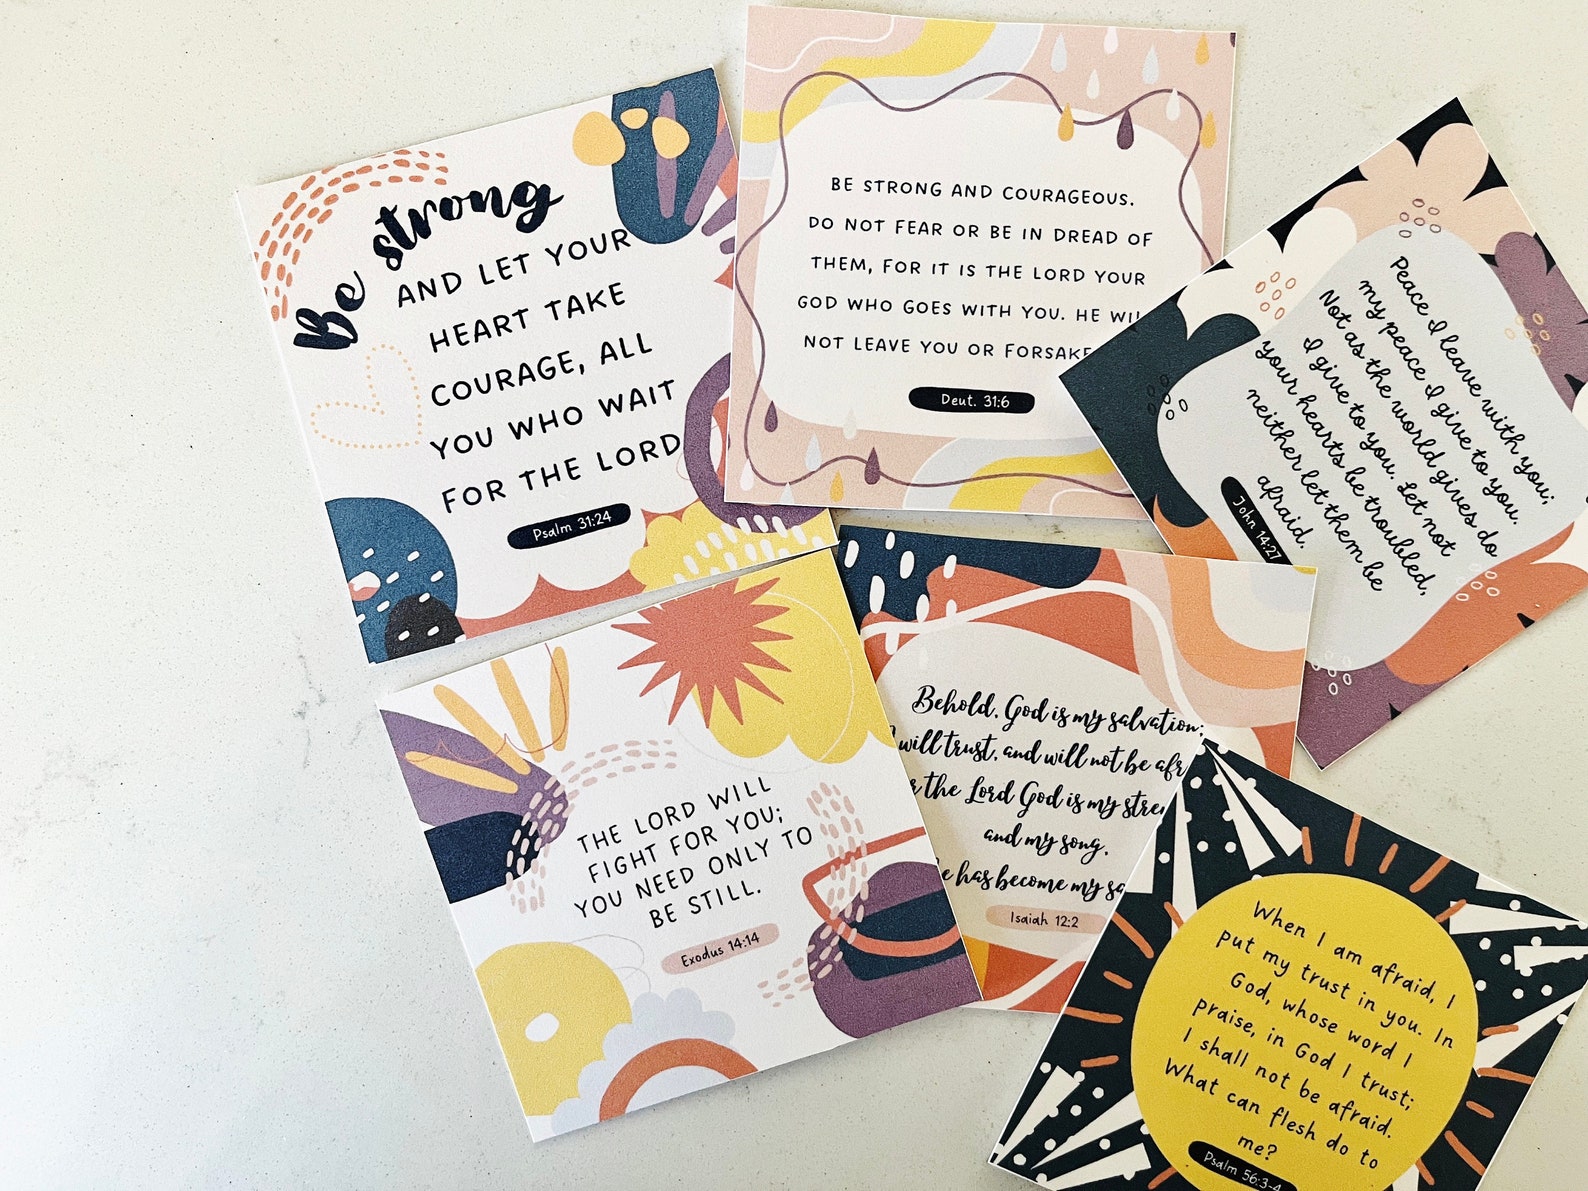 Be strong
AND LET YOUR
HEART TAKE
COURAGE, ALL
YOU WHO WAIT
FOR THE LORD
Psalm 31:24
BE STRONG AND COURAGEOUS.
DO NOT FEAR OR BE IN DREAD OF
THEM, FOR IT IS THE LORD YOUR
GOD WHO GOES WITH YOU. HE
NOT LEAVE YOU OR FORSAKE
Deut. 31:6
Peace I leave with you;
my peace I give to you.
Not as the world gives do
I give to you. Let not
your hearts be troubled,
neither let them be
afraid.
John 14:27
THE LORD WILL
FIGHT FOR YOU;
YOU NEED ONLY TO
BE STILL.
Exodus 14:14
Behold, God is my salvation;
will trust, and will not be
the Lord God is my
and my song,
has become my
Isaiah 12:2
When I am afraid, I
put my trust in you. In
God, whose word I
praise, in God I trust;
I shall not be afraid.
What can flesh do to
me?
Psalm 56:3-4